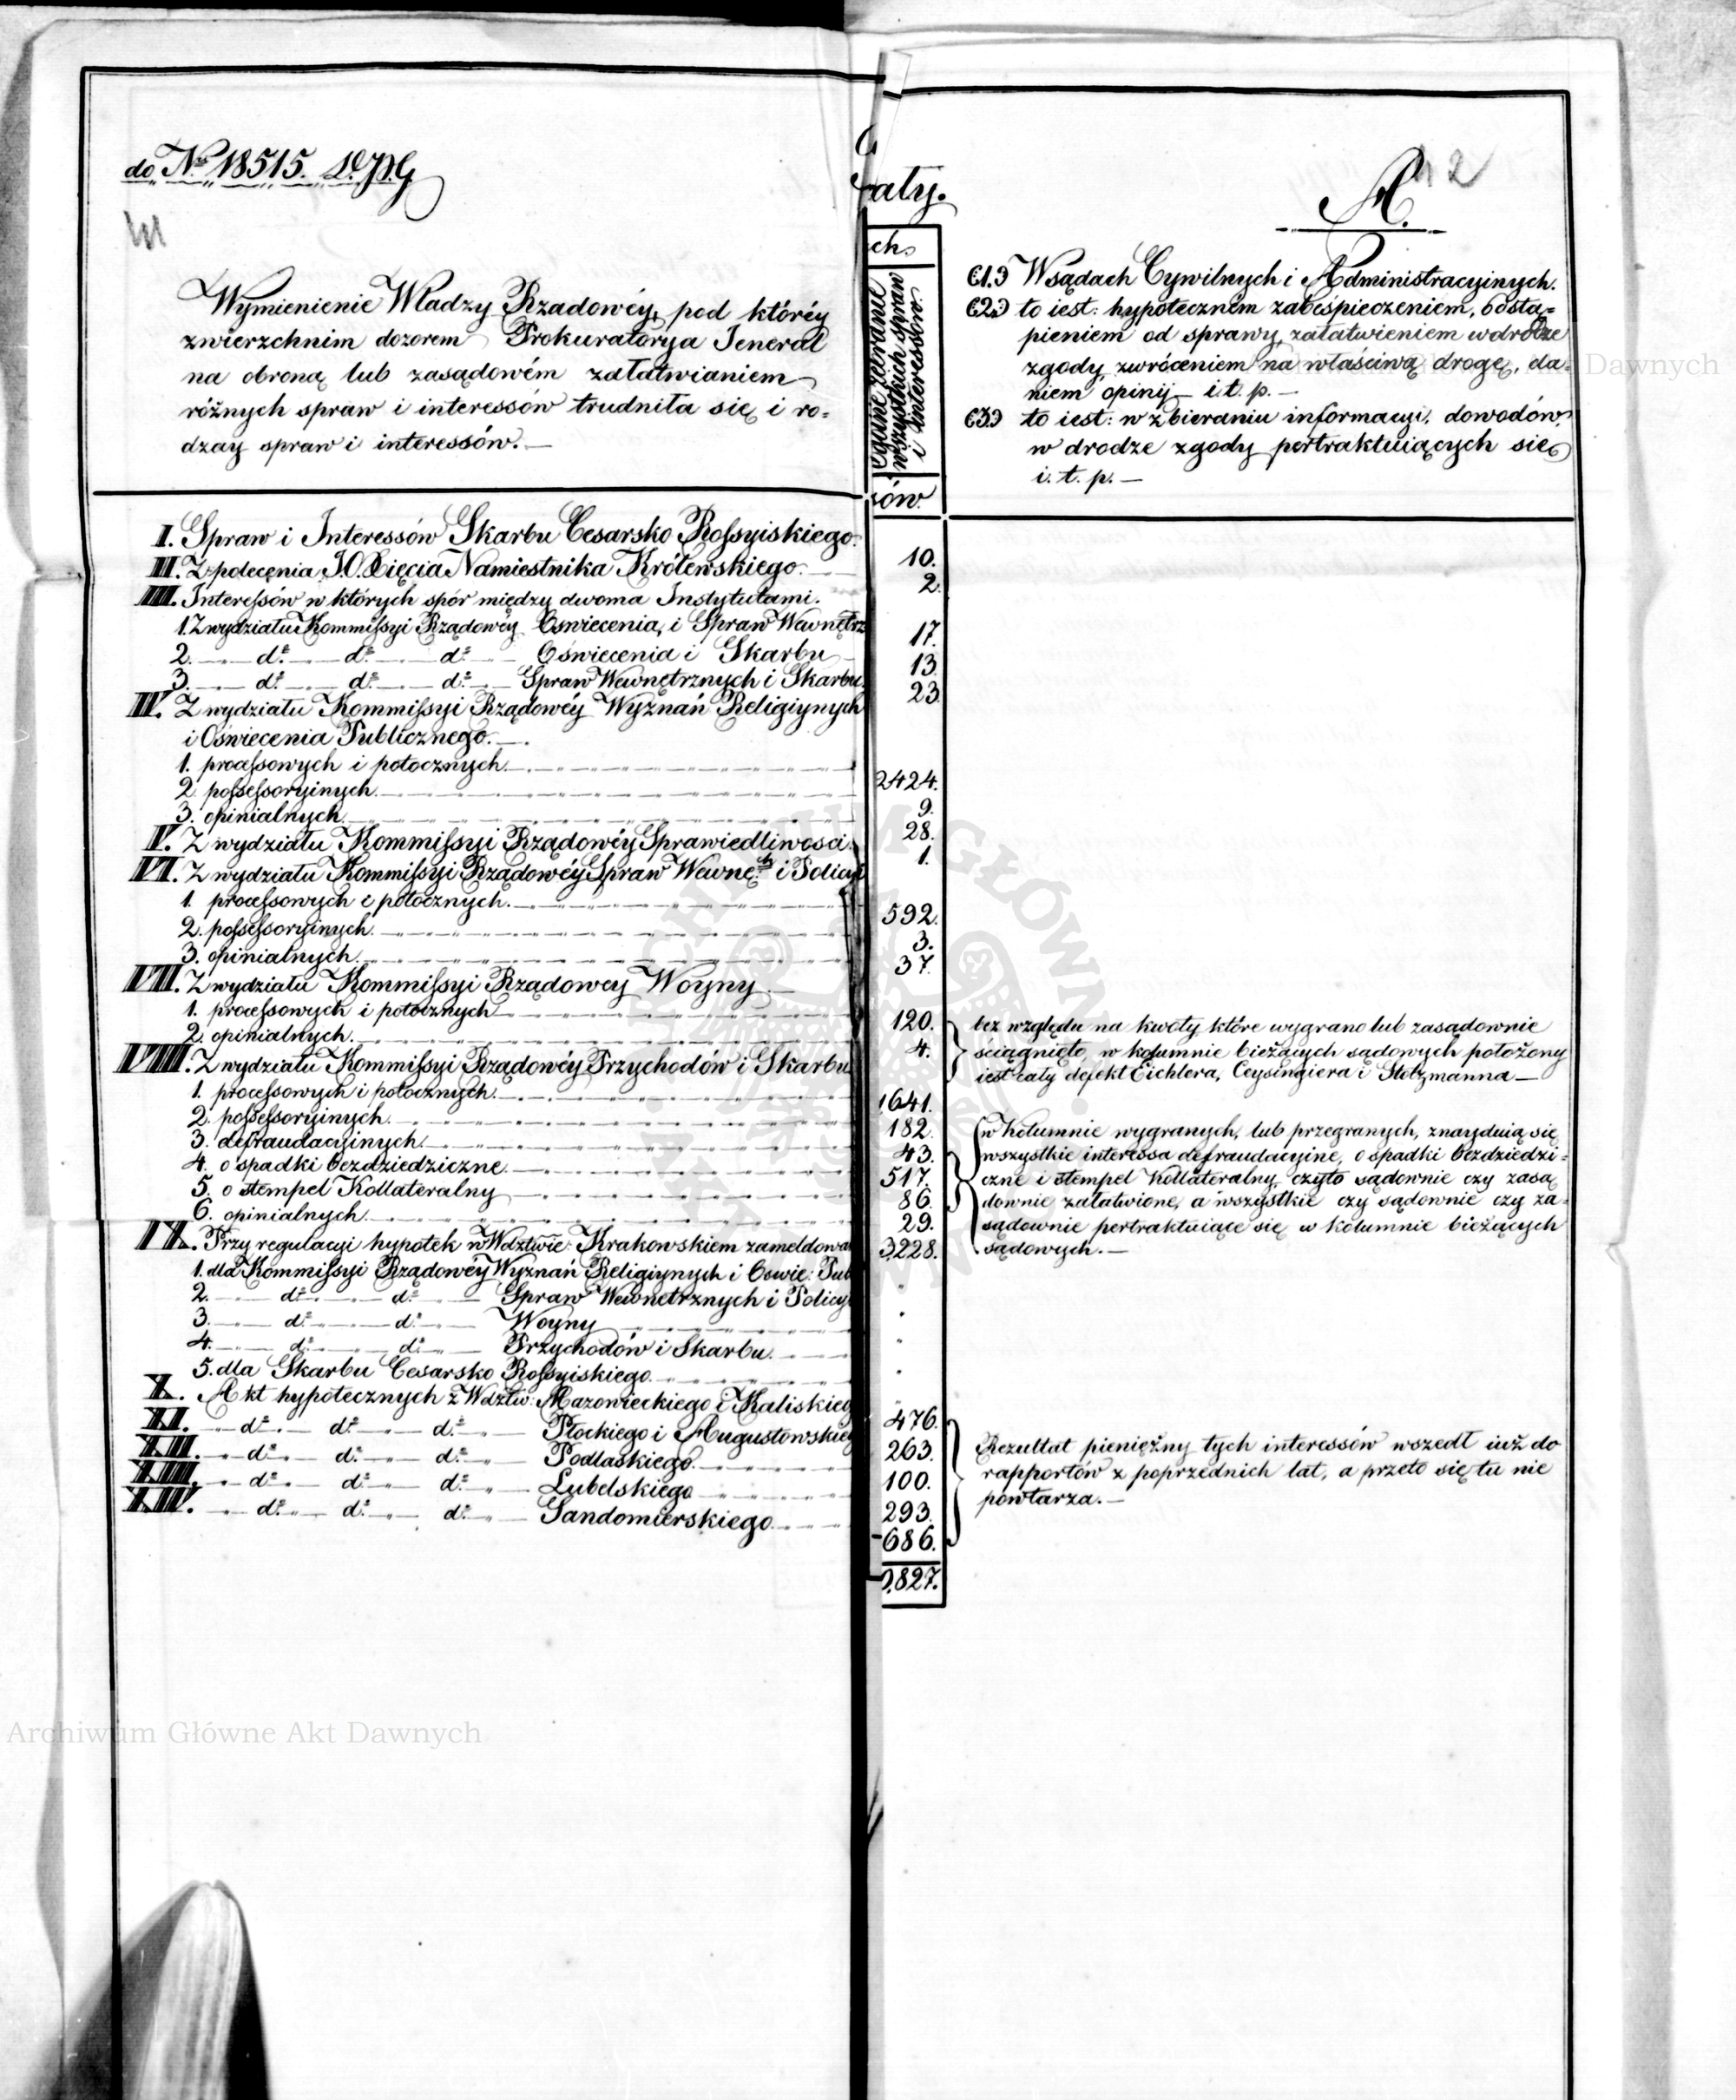 do No 18515. D. P. G
A.
12
Wymienienie Władzy Rządowéy, pod któréy
zwierzchnim dozorem Prokuratorya Jeneral
na obroną lub zasądowém załatwianiem
różnych spraw i interessów trudniła się i ro=
dzay spraw i interessów.—
aty.
ch.
wszystkich spraw
i interessów.
ów.
(1.) W sądach Cywilnych i Administracyinych.
(2.) to iest: hypoteczném zabespieczeniem, odstą=
pieniem od sprawy, załatwieniem w drodze
zgody, zwróceniem na właściwą drogę, da=
niem opinij i. t. p.—
(3.) to iest: w zbieraniu informacyi, dowodów,
w drodze zgody pertraktuiących się
i. t. p.—
I. Spraw i Interessów Skarbu Cesarsko Rossyiskiego. 10.
II. Z polecenia J. O. Xięcia Namiestnika Królewskiego. 2.
III. Interessów w których spór między dwoma Instytutami.
1. Z wydziału Kommissyi Rządowéy Oświecenia, i Spraw Wewnętrz 17.
2. do do do Oświecenia i Skarbu 13.
3. do do do Spraw Wewnętrznych i Skarbu. 23.
IV. Z wydziału Kommissyi Rządowéy Wyznań Religiynych
i Oświecenia Publicznego.—
1. processowych i potocznych. 2424.
2. possessoryinych. 9.
3. opinialnych. 28.
V. Z wydziału Kommissyi Rządowéy Sprawiedliwości. 1.
VI. Z wydziału Kommissyi Rządowéy Spraw Wewnę: i Policyi
1. processowych i potocznych. 592.
2. possessoryinych. 3.
3. opinialnych. 37.
VII. Z wydziału Kommissyi Rządowey Woyny
1. processowych i potocznych 120.
2. opinialnych. 4.
bez względu na kwoty które wygrano lub zasądownie
ściągnięto, w kolumnie bieżących sądowych położony
iest cały defekt Eichlera, Ceysingiera i Stotzmanna—
VIII. Z wydziału Kommissyi Rządowéy Przychodów i Skarbu
1. processowych i potocznych. 1641.
2. possessoryinych. 182.
3. defraudacyinych. 43.
4. o spadki bezdziedziczne. 517.
5. o stempel Kollateralny 86.
6. opinialnych. 29.
w kolumnie wygranych, lub przegranych, znayduią się
wszystkie interessa defraudacyine, o spadki bezdziedzi=
czne i stempel Kollateralny, czyto sądownie czy zasą
downie załatwione, a wszystkie czy sądownie czy za=
sądownie pertraktuiące się w kolumnie bieżących
sądowych.—
IX. Przy regulacyi hypotek w Wdztwie: Krakowskiem zameldowa 3228.
1. dla Kommissyi Rządowéy Wyznań Religiynych i Oświe: Pub
2. do do Spraw Wewnętrznych i Policyi
3. do do Woyny
4. do do Przychodów i Skarbu.
5. dla Skarbu Cesarsko Rossyiskiego.
X. Akt hypotecznych z Wdztw: Mazowieckiego i Kaliskieg 476.
XI. do do do Płockiego i Augustowskieg 263.
XII. do do do Podlaskiego. 100.
XIII. do do do Lubelskiego 293.
XIV. do do do Sandomierskiego. 686.
Rezultat pieniężny tych interessów wszedł iuż do
rapportów z poprzednich lat, a przeto się tu nie
powtarza.—
827.
Archiwum Główne Akt Dawnych